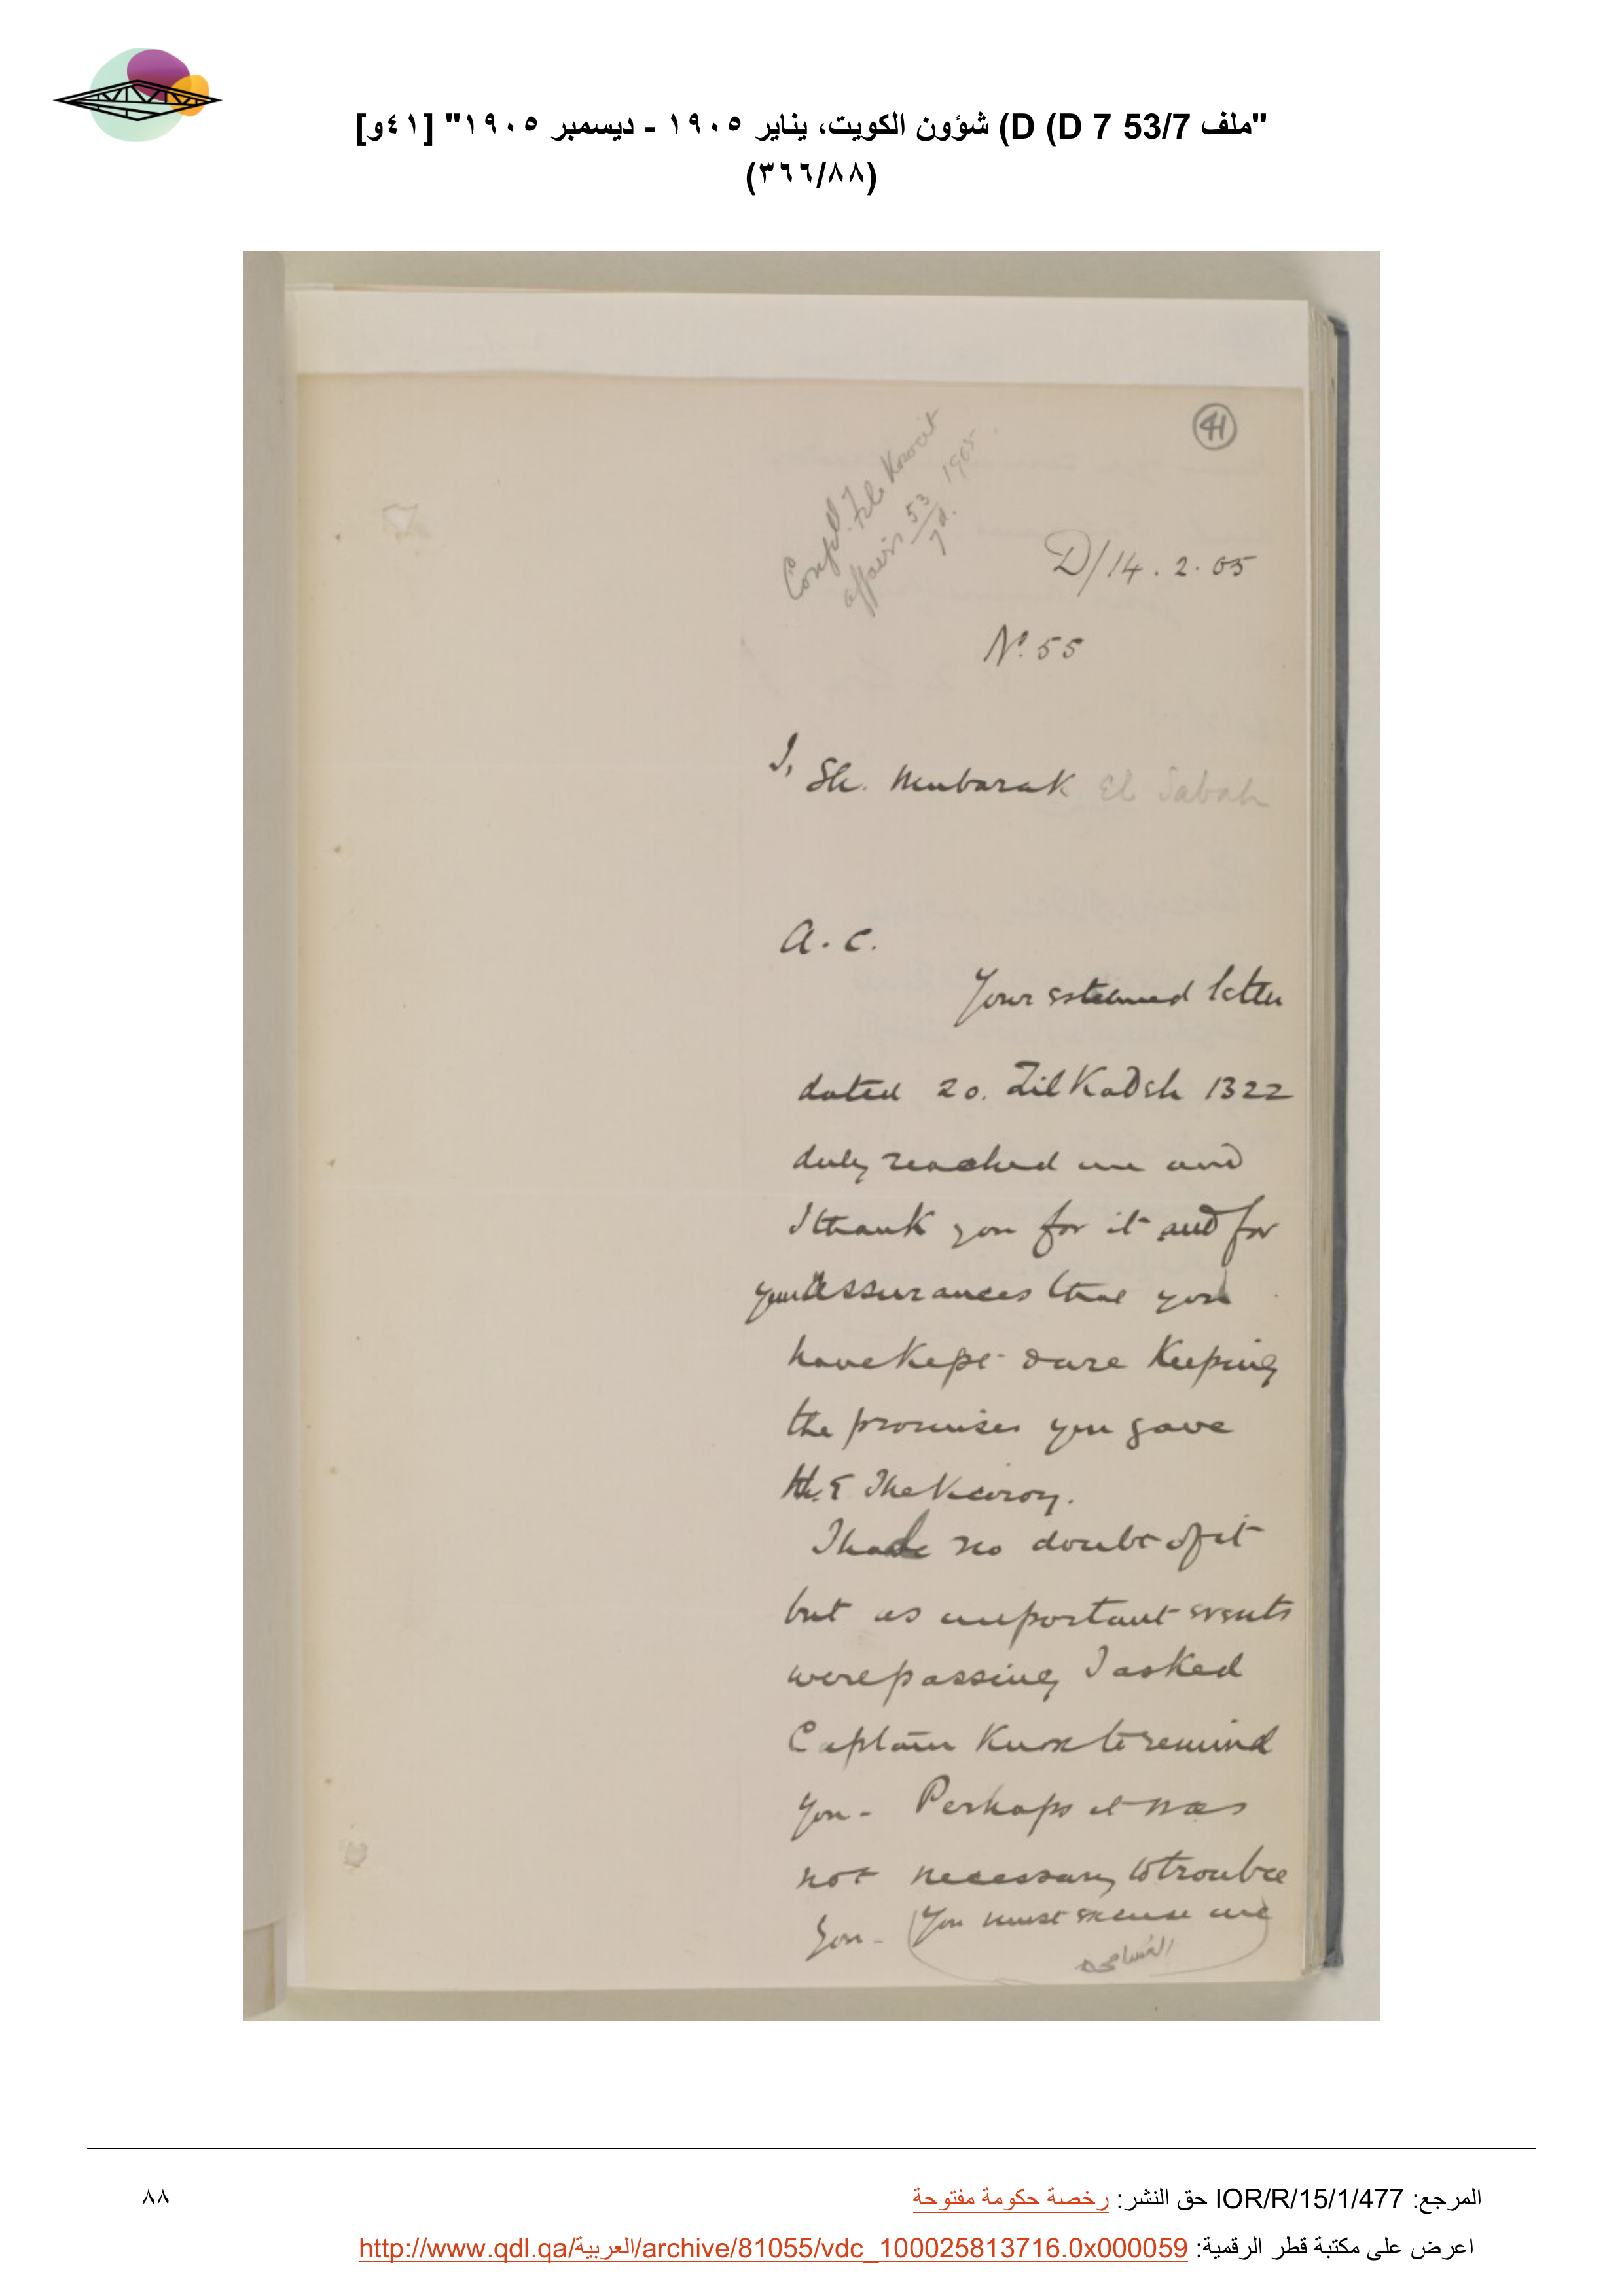 "ملف 53/7 D (D 7) شؤون الكويت، يناير ١٩٠٥ - ديسمبر ١٩٠٥" [٤١و]
(٣٦٦/٨٨)
41
Confl. File Koweit
affairs 53/7d. 1905
D/14.2.05
No. 55
To Sh. Mubarak El Sabah
A. C.
Your esteemed letter
dated 20. Zil Kadeh 1322
duly reached me and
I thank you for it and for
your assurances that you
have kept & are keeping
the promises you gave
H.E The Viceroy.
I had no doubt of it
but as important events
were passing I asked
Captain Knox to remind
you - Perhaps it was
not necessary to trouble
you - (You must excuse me)
المسامحه
المرجع: IOR/R/15/1/477 حق النشر: رخصة حكومة مفتوحة
٨٨
اعرض على مكتبة قطر الرقمية: http://www.qdl.qa/العربية/archive/81055/vdc_100025813716.0x000059